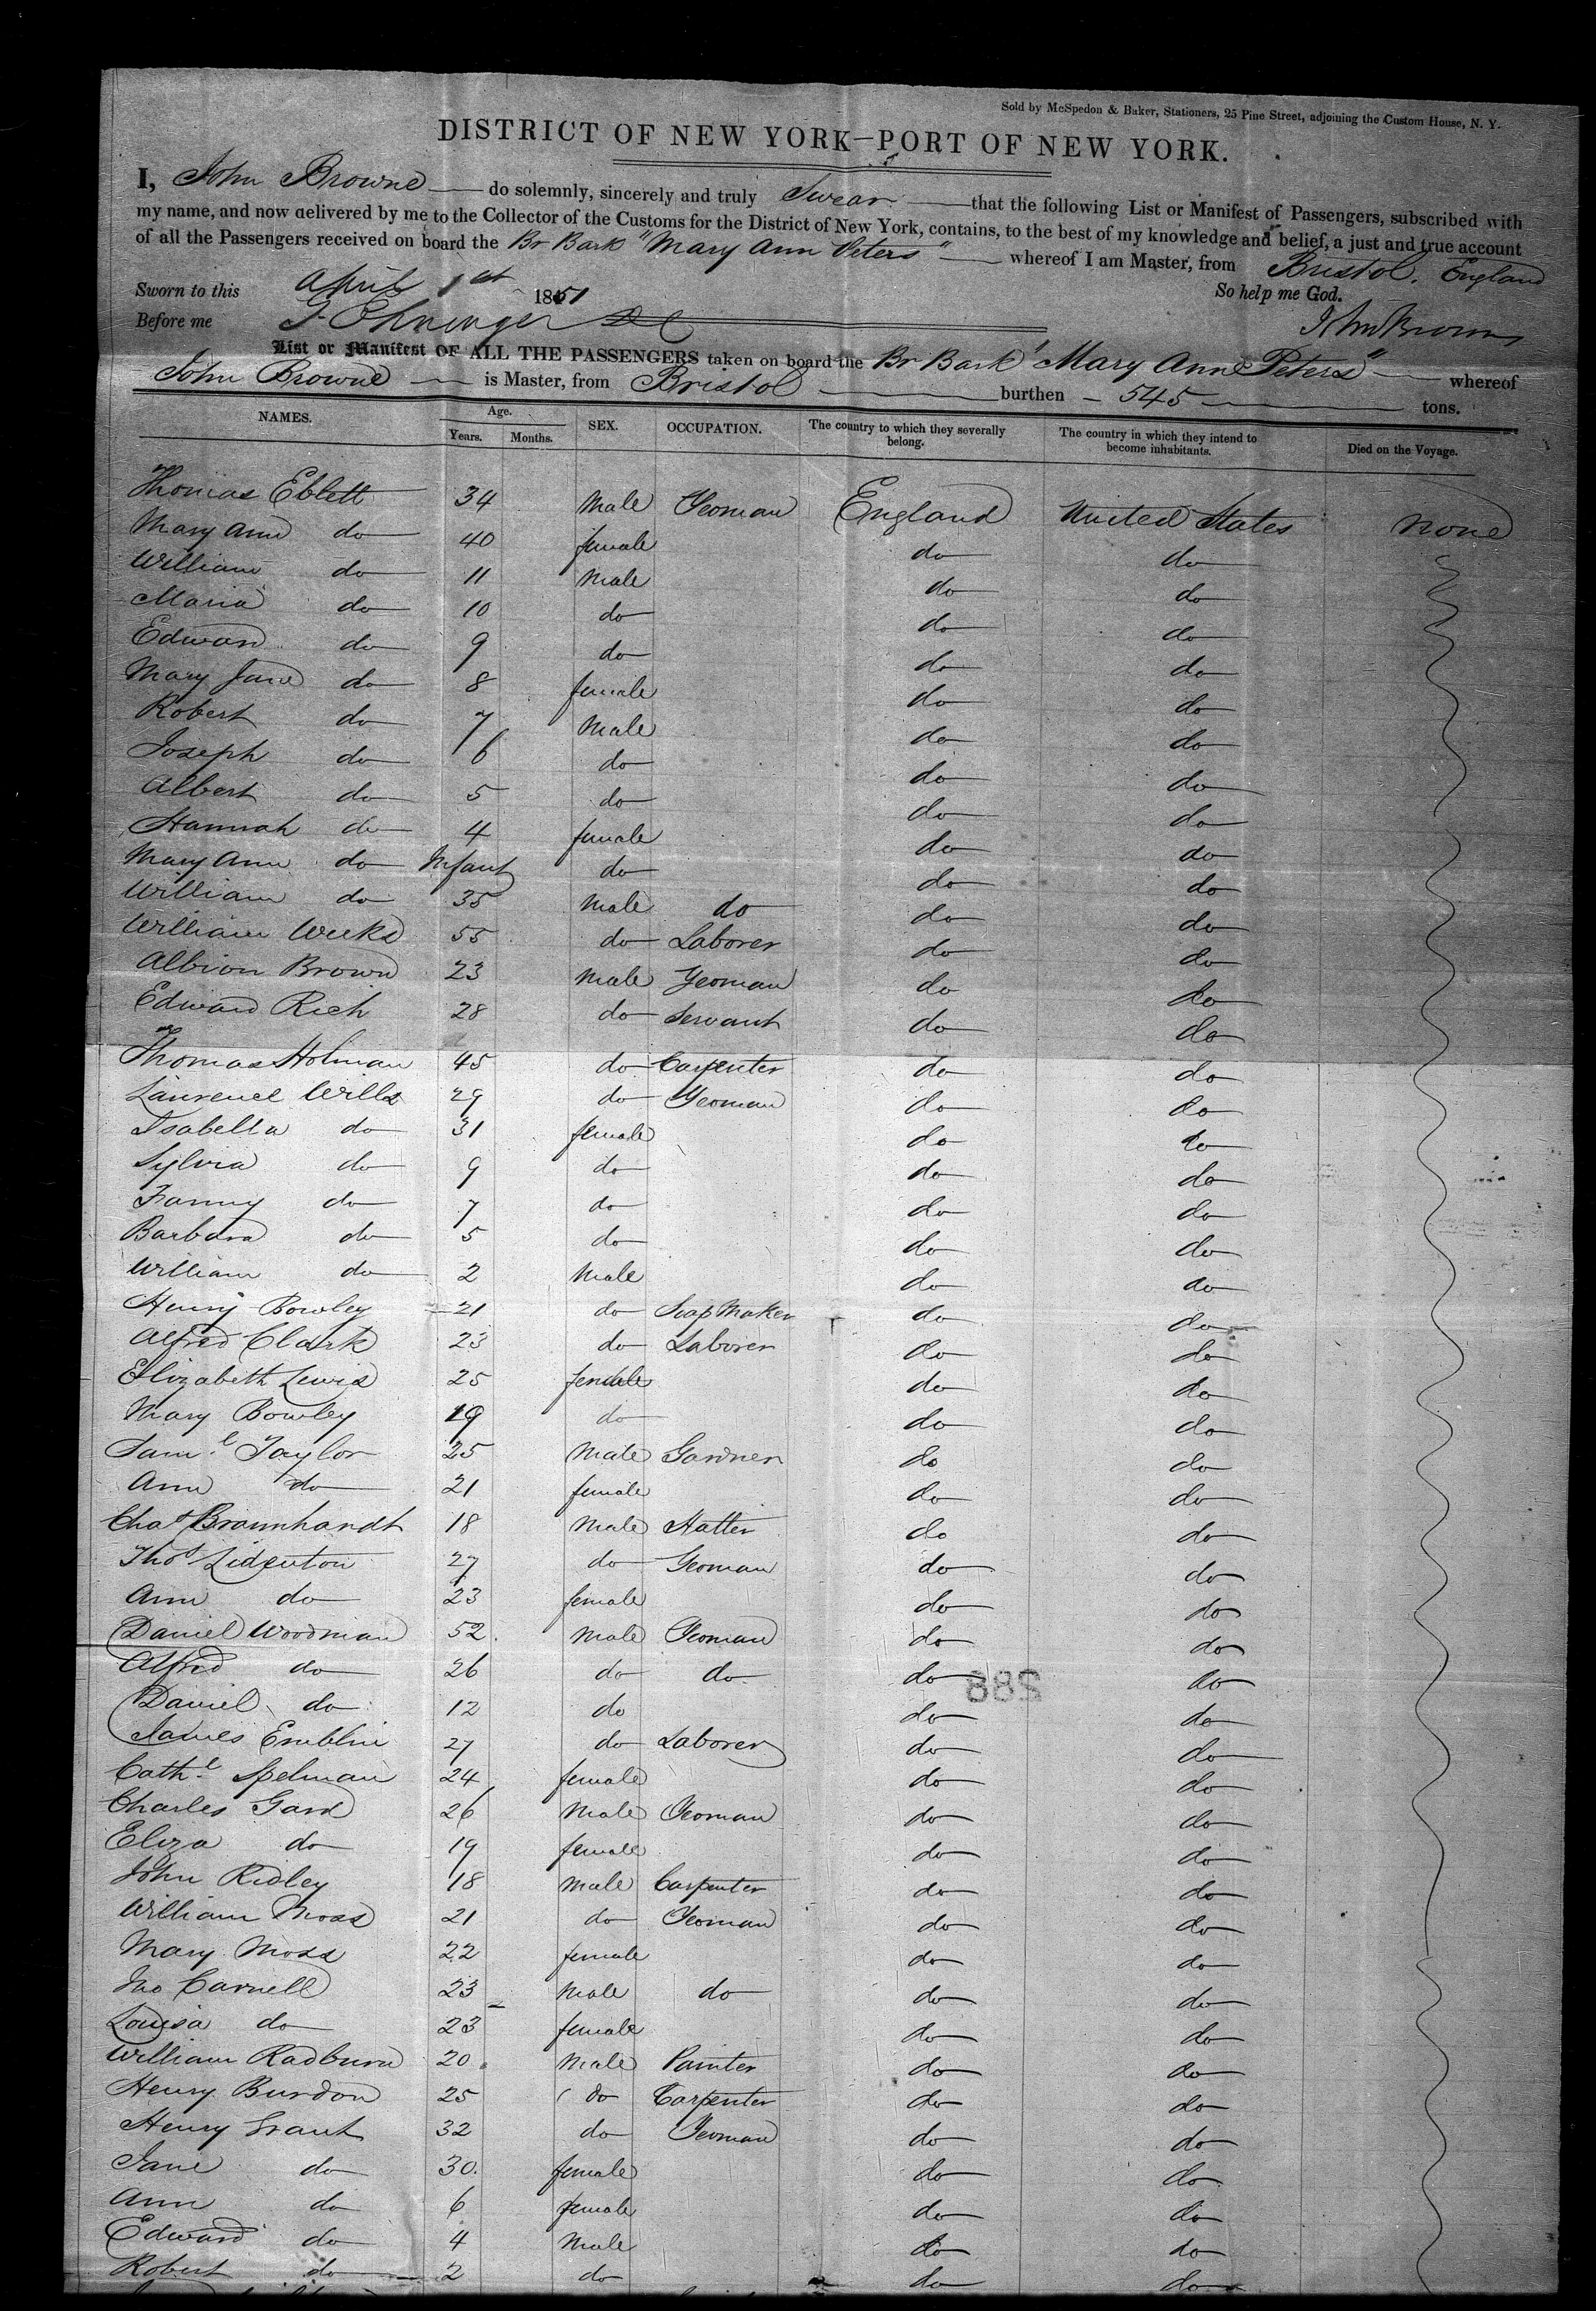 Sold by McSpedon & Baker, Stationers, 25 Pine Street, adjoining the Custom House, N. Y.
DISTRICT OF NEW YORK—PORT OF NEW YORK.
I, John Browne do solemnly, sincerely and truly Swear that the following List or Manifest of Passengers, subscribed with
my name, and now delivered by me to the Collector of the Customs for the District of New York, contains, to the best of my knowledge and belief, a just and true account
of all the Passengers received on board the Br Bark "Mary Ann Peters" whereof I am Master, from Bristol. England
Sworn to this April 1st 1851 So help me God.
Before me John Browne
List or Manifest OF ALL THE PASSENGERS taken on board the Br Bark "Mary Ann Peters" whereof
John Browne is Master, from Bristol burthen 545 tons.
NAMES. Age. Years. Months. SEX. OCCUPATION. The country to which they severally belong. The country in which they intend to become inhabitants. Died on the Voyage.
Thomas Eblett 34 Male Yeoman England United States None
Mary Ann do 40 female do do
William do 11 Male do do
Maria do 10 do do do
Edward do 9 do do do
Mary Jane do 8 female do do
Robert do 7 Male do do
Joseph do 6 do do do
Albert do 5 do do do
Hannah do 4 female do do
Mary Ann do Infant do do do
William do 35 Male do do do
William Weeks 55 do Laborer do do
Albion Brown 23 Male Yeoman do do
Edward Rich 28 do Servant do do
Thomas Holman 45 do Carpenter do do
Laurence Wills 29 do Yeoman do do
Isabella do 31 female do do
Sylvia do 9 do do do
Fanny do 7 do do do
Barbara do 5 do do do
William do 2 Male do do
Henry Bowley 21 do Soap Maker do do
Alfred Clark 23 do Laborer do do
Elizabeth Lewis 25 female do do
Mary Bowley 19 do do do
Saml Taylor 25 Male Gardner do do
Ann do 21 female do do
Chas Braunhandt 18 Male Hatter do do
Thos Lidenton 27 do Yeoman do do
Ann do 23 female do do
Daniel Woodman 52 Male Yeoman do do
Alfred do 26 do do do do
Daniel do 12 do do do
James Emblin 27 do Laborer do do
Cathe Spelman 24 female do do
Charles Gard 26 Male Yeoman do do
Eliza do 19 female do do
John Ridley 18 Male Carpenter do do
William Moss 21 do Yeoman do do
Mary Moss 22 female do do
Jno Carnell 23 Male do do do
Louisa do 23 female do do
William Radburn 20 Male Painter do do
Henry Burdon 25 do Carpenter do do
Henry Grant 32 do Yeoman do do
Jane do 30 female do do
Ann do 6 female do do
Edward do 4 Male do do
Robert do 2 do do do